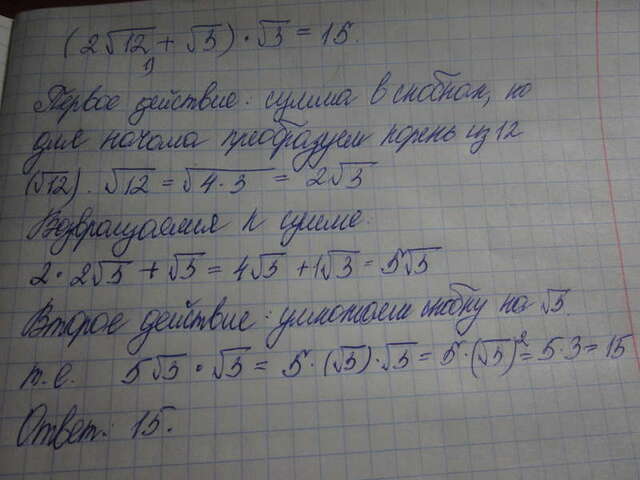 (2√12 + √3) · √3 = 15.
1)
Первое действие: сумма в скобках, но
для начала преобразуем корень из 12
(√12). √12 = √4·3 = 2√3
Возвращаемся к сумме.
2 · 2√3 + √3 = 4√3 + 1√3 = 5√3
Второе действие: умножаем скобку на √3.
т.е. 5√3 · √3 = 5·(√3)·√3 = 5·(√3)² = 5·3 = 15
Ответ: 15.